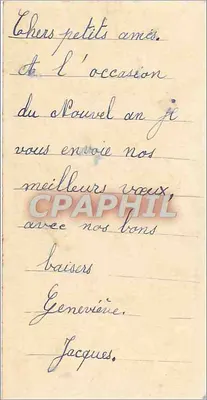 Chers petits amis.
A l'occasion
du Nouvel an je
vous envoie nos
meilleurs vœux,
CPAPHIL
avec nos bons
baisers
Geneviève.
Jacques.